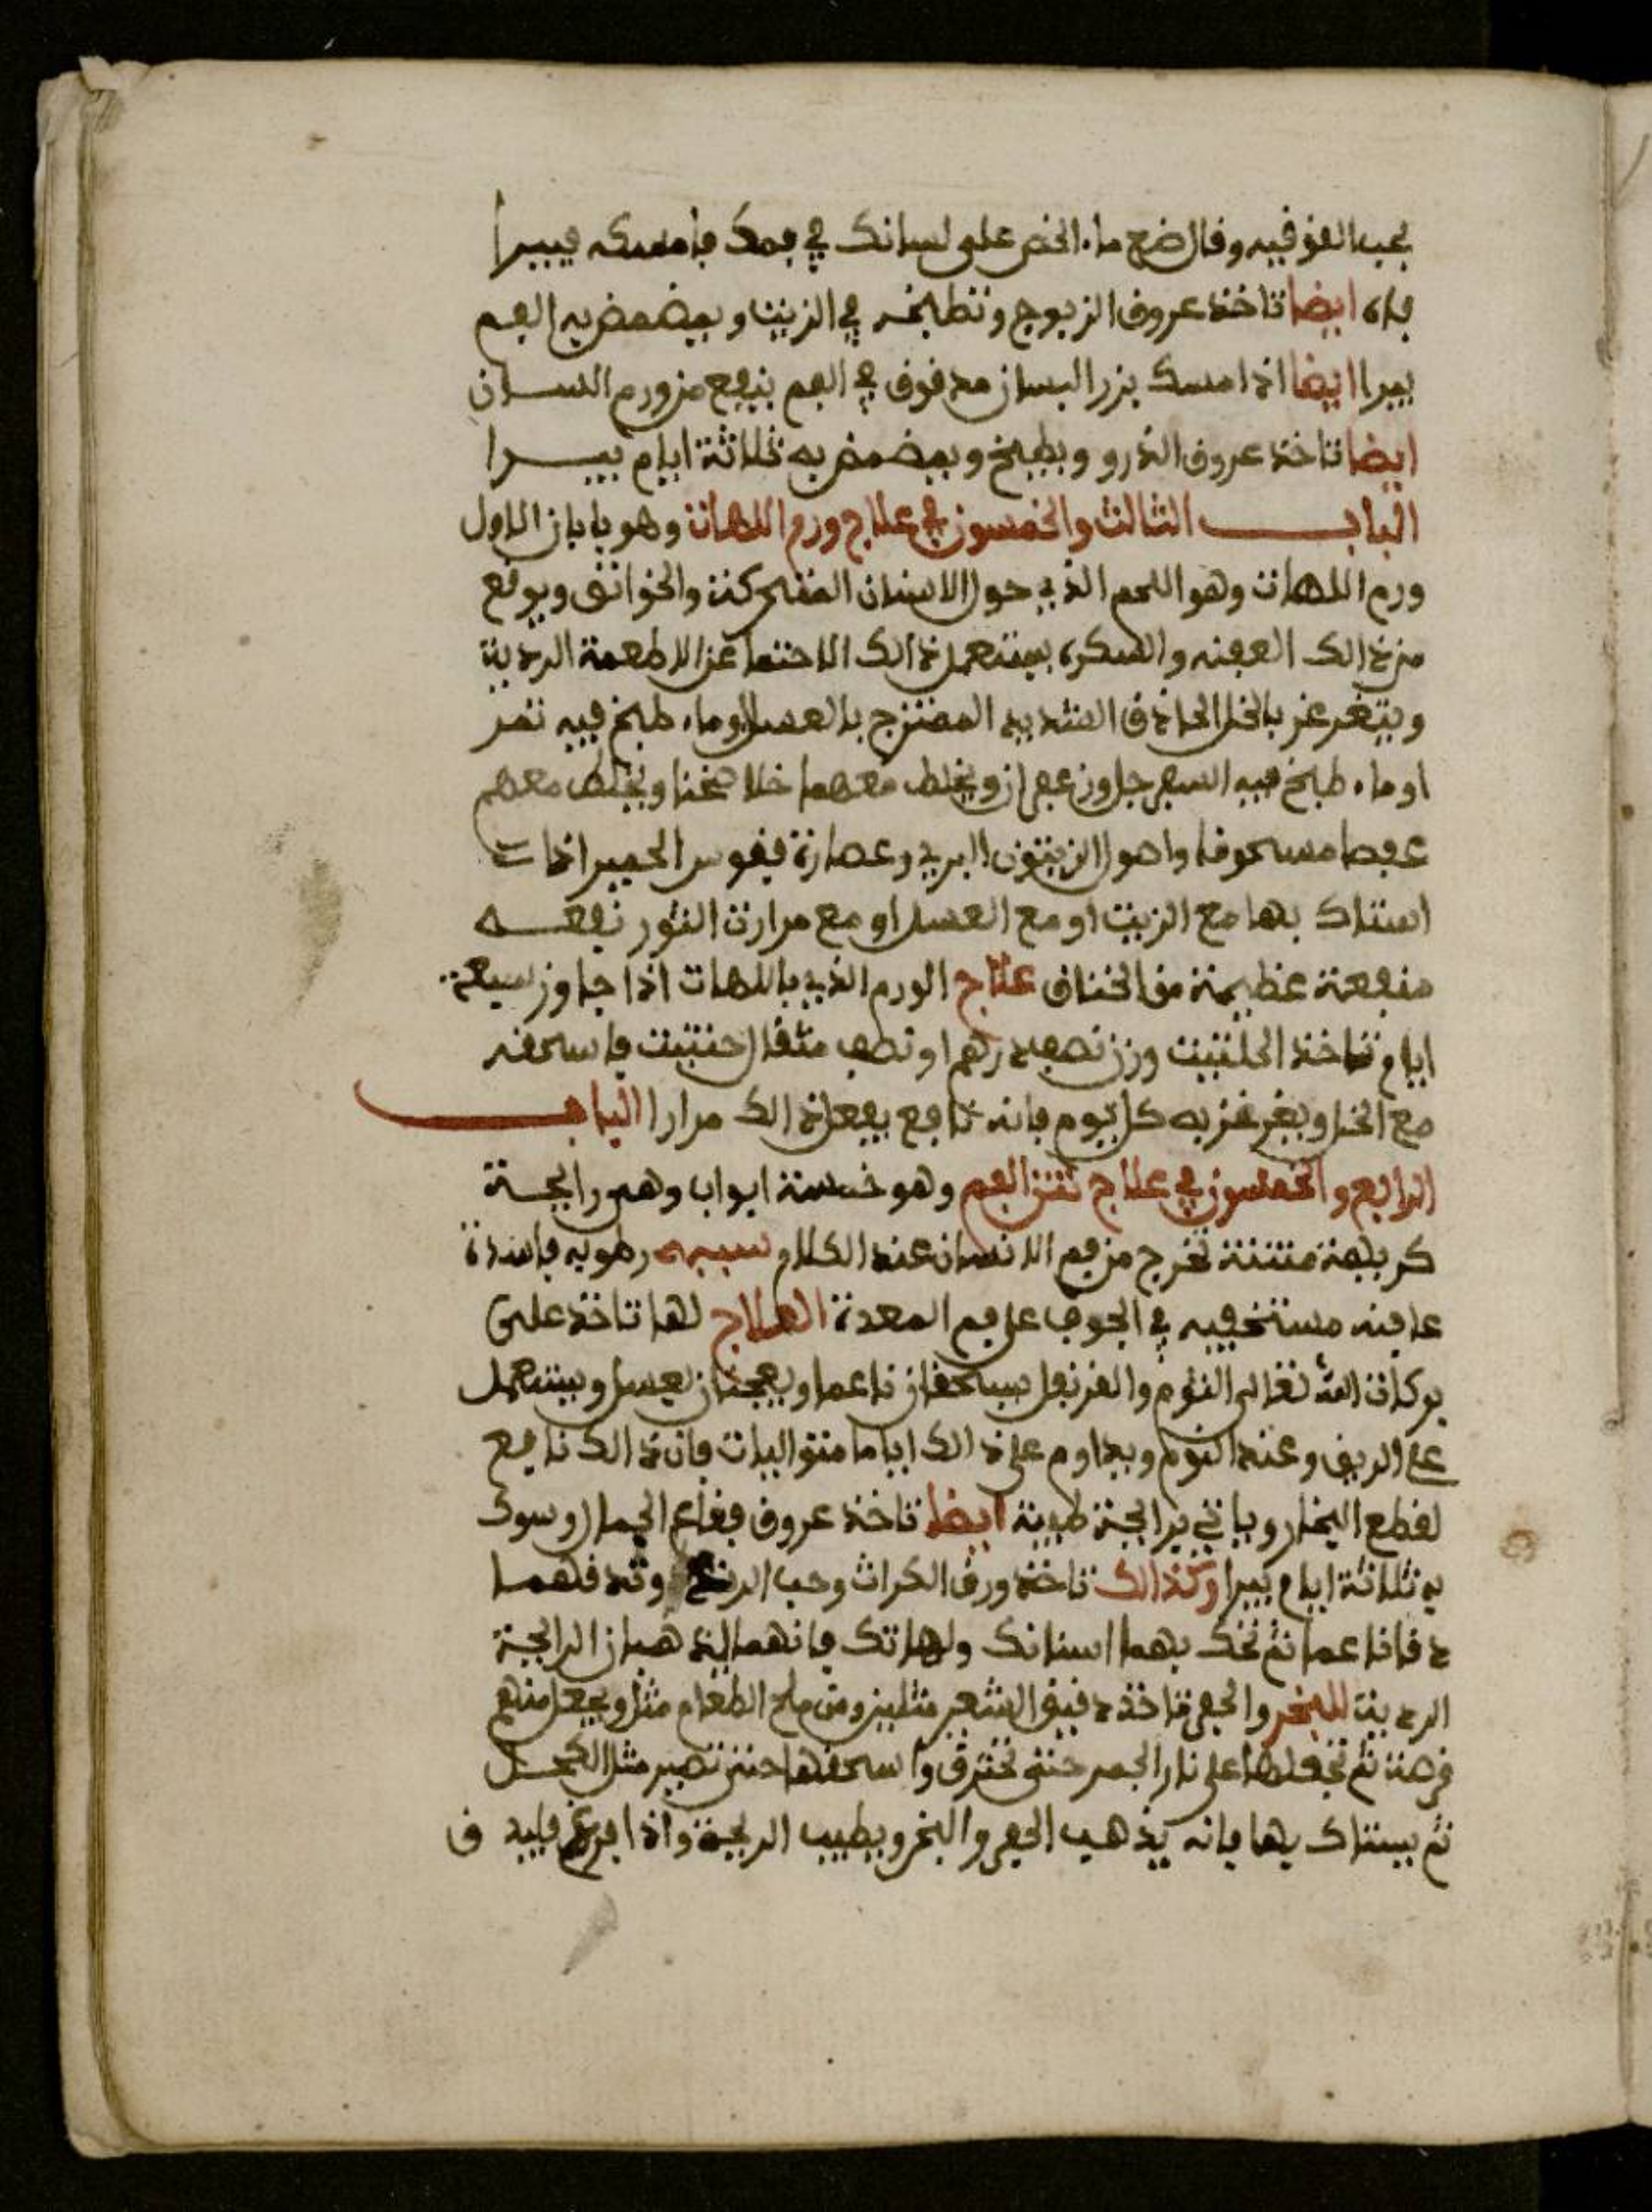 يجب الفوقيه وقال ضع ماء الخص على لسانك في فمك فامسكه فيبرا
فاه ايضا تاخذ عروق الزبوج وتطبخه في الزيت ويمضمض به الفم
يبرا ايضا اذا امسك بزر البسان مدقوق في الفم ينفع من ورم اللسان
ايضا تاخذ عروق الذرو ويطبخ ويمضمض به ثلاثة ايام يبرا
الباب الثالث والخمسون في علاج ورم اللهات وهو بابان الاول
ورم اللهات وهو اللحم الذي حول الاسنان المتحركة والخوانق ويوقع
من ذالك العفنه والسكر، يستعمل ذالك الاحتما عن الاطعمة الردية
ويتغرغر بالخل الحاذق الشديد الممتزج بالعسل وماء طبخ فيه تمر
او ماء طبخ فيه السفرجل وزعفران ويخلط معهما خلا سخنا ويخلط معهم
عفصا مسحوقا واصول الزيتون البري وعصارة فيقوس الحمير اذا
استاك بها مع الزيت او مع العسل او مع مرارة الثور نفعه
منفعة عظيمة من الخناق علاج الورم الذي باللهات اذا جاوز سبعة
ايام تاخذ الحلتيت وزن نصف درهم او نصف مثقال حتيت فاسحقه
مع الخل ويغرغر به كل يوم فانه نافع يفعل ذالك مرارا الباب
الرابع والخمسون في علاج نتن الفم وهو خمسة ابواب وهي رايحة
كريهة منتنة تخرج من فم الانسان عند الكلام سببه رطوبه فاسدة
عافنه مستخفيه في الجوف على فم المعدة العلاج لها تاخذ على
بركات الله تعالى الثوم والقرنفل يسحقان ناعما ويعجنان بعسل ويستعمل
على الريق وعند النوم ويداوم على ذالك اياما متواليات فان ذالك نافع
لقطع البخار وياتي برايحة طيبة ايضا تاخذ عروق فقاع الجمال وسوك
به ثلاثة ايام يبرا وكذالك تاخذ ورق الكراث وحب الرند وتدقهما
دقا ناعما ثم تحك بهما اسنانك ولهاتك فانهما يذهبان الرايحة
الردية للبخر والحفر تاخذ دقيق الشعير مثلين ومن ملح الطعام مثل ويجعل منهم
قرصة ثم تجعلها على نار الجمر حتى تحترق واسحقها حتى تصير مثل الكحل
ثم يستاك بها فانه يذهب الحفر والبخر ويطيب الريحة واذا افرغ فليدق